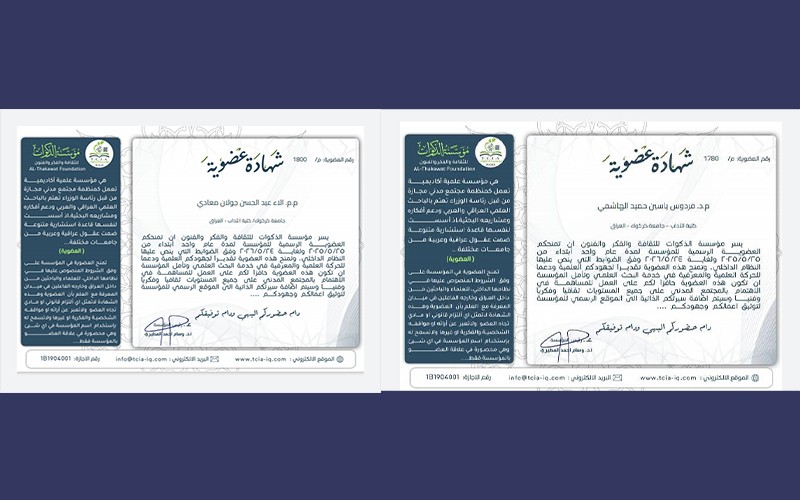 رقم العضوية: م/ 1780
شهادة عضوية
م.د. فردوس ياسين حميد الهاشمي
كلية الآداب - جامعة كركوك - العراق
يسر مؤسسة الذكوات للثقافة والفكر والفنون ان تمنحكم
العضوية الرسمية للمؤسسة لمدة عام واحد أبتداء من
٢٠٢٥/٥/٢٥ ولغاية ٢٠٢٦/٥/٢٤ وفق الضوابط التي ينص عليها
النظام الداخلي. ونمنح هذه العضوية تقديرا لجهودكم العلمية ودعما
للحركة العلمية والمعرفية في خدمة البحث العلمي ونأمل المؤسسة
ان تكون هذه العضوية حافزا لكم على العمل للمساهمة في
الأهتمام بالمجتمع المدني على جميع المستويات ثقافيا وفكريا
وفنيا وسيتم اضافة سيرتكم الذاتية الى الموقع الرسمي للمؤسسة
لتوثيق اعمالكم وجهودكم ....
دام حضوركم البهي ودام توفيقكم
رئيس المؤسسة
مؤسسة الذكوات
للثقافة والفكر والفنون
AL-Thakawat Foundation
TCIA
هي مؤسسة علمية أكاديمية
تعمل كمنظمة مجتمع مدني مجازة
من قبل رئاسة الوزراء تهتم بالباحث
العلمي العراقي والعربي ودعم أفكاره
ومشاريعه البحثية،اذ أسست
لنفسها قاعدة استشارية متنوعة
ضمت عقول عراقية وعربية من
جامعات مختلفة...
(العضوية)
تمنح العضوية في المؤسسة على
وفق الشروط المنصوص عليها في
نظامها الداخلي، للعلماء والباحثين من
داخل العراق وخارجه الفاعلين في ميدان
المعرفة مع العلم بأن العضوية وهذه
الشهادة لاتمثل اي التزام قانوني او مادي
تجاه العضو ولاتعبر عن آرائه او مواقفه
الشخصية والفكرية او غيرها ولاتسمح له
بإستخدام اسم المؤسسة في اي شئ
وهي محصورة في علاقة العضو
بالمؤسسة فقط...
الموقع الالكتروني : www.tcia-iq.com
البريد الالكتروني : info@tcia-iq.com
رقم الاجازة: 1B1904001
رقم العضوية: م/ 1800
شهادة عضوية
م.م. الاء عبد الحسن جولان معادي
جامعة كركوك/ كلية الاداب - العراق
يسر مؤسسة الذكوات للثقافة والفكر والفنون ان تمنحكم
العضوية الرسمية للمؤسسة لمدة عام واحد أبتداء من
٢٠٢٥/٥/٢٥ ولغاية ٢٠٢٦/٥/٢٤ وفق الضوابط التي ينص عليها
النظام الداخلي. ونمنح هذه العضوية تقديرا لجهودكم العلمية ودعما
للحركة العلمية والمعرفية في خدمة البحث العلمي ونأمل المؤسسة
ان تكون هذه العضوية حافزا لكم على العمل للمساهمة في
الأهتمام بالمجتمع المدني على جميع المستويات ثقافيا وفكريا
وفنيا وسيتم اضافة سيرتكم الذاتية الى الموقع الرسمي للمؤسسة
لتوثيق اعمالكم وجهودكم ....
دام حضوركم البهي ودام توفيقكم
رئيس المؤسسة
مؤسسة الذكوات
للثقافة والفكر والفنون
AL-Thakawat Foundation
TCIA
هي مؤسسة علمية أكاديمية
تعمل كمنظمة مجتمع مدني مجازة
من قبل رئاسة الوزراء تهتم بالباحث
العلمي العراقي والعربي ودعم أفكاره
ومشاريعه البحثية،اذ أسست
لنفسها قاعدة استشارية متنوعة
ضمت عقول عراقية وعربية من
جامعات مختلفة...
(العضوية)
تمنح العضوية في المؤسسة على
وفق الشروط المنصوص عليها في
نظامها الداخلي، للعلماء والباحثين من
داخل العراق وخارجه الفاعلين في ميدان
المعرفة مع العلم بأن العضوية وهذه
الشهادة لاتمثل اي التزام قانوني او مادي
تجاه العضو ولاتعبر عن آرائه او مواقفه
الشخصية والفكرية او غيرها ولاتسمح له
بإستخدام اسم المؤسسة في اي شئ
وهي محصورة في علاقة العضو
بالمؤسسة فقط...
الموقع الالكتروني : www.tcia-iq.com
البريد الالكتروني : info@tcia-iq.com
رقم الاجازة: 1B1904001